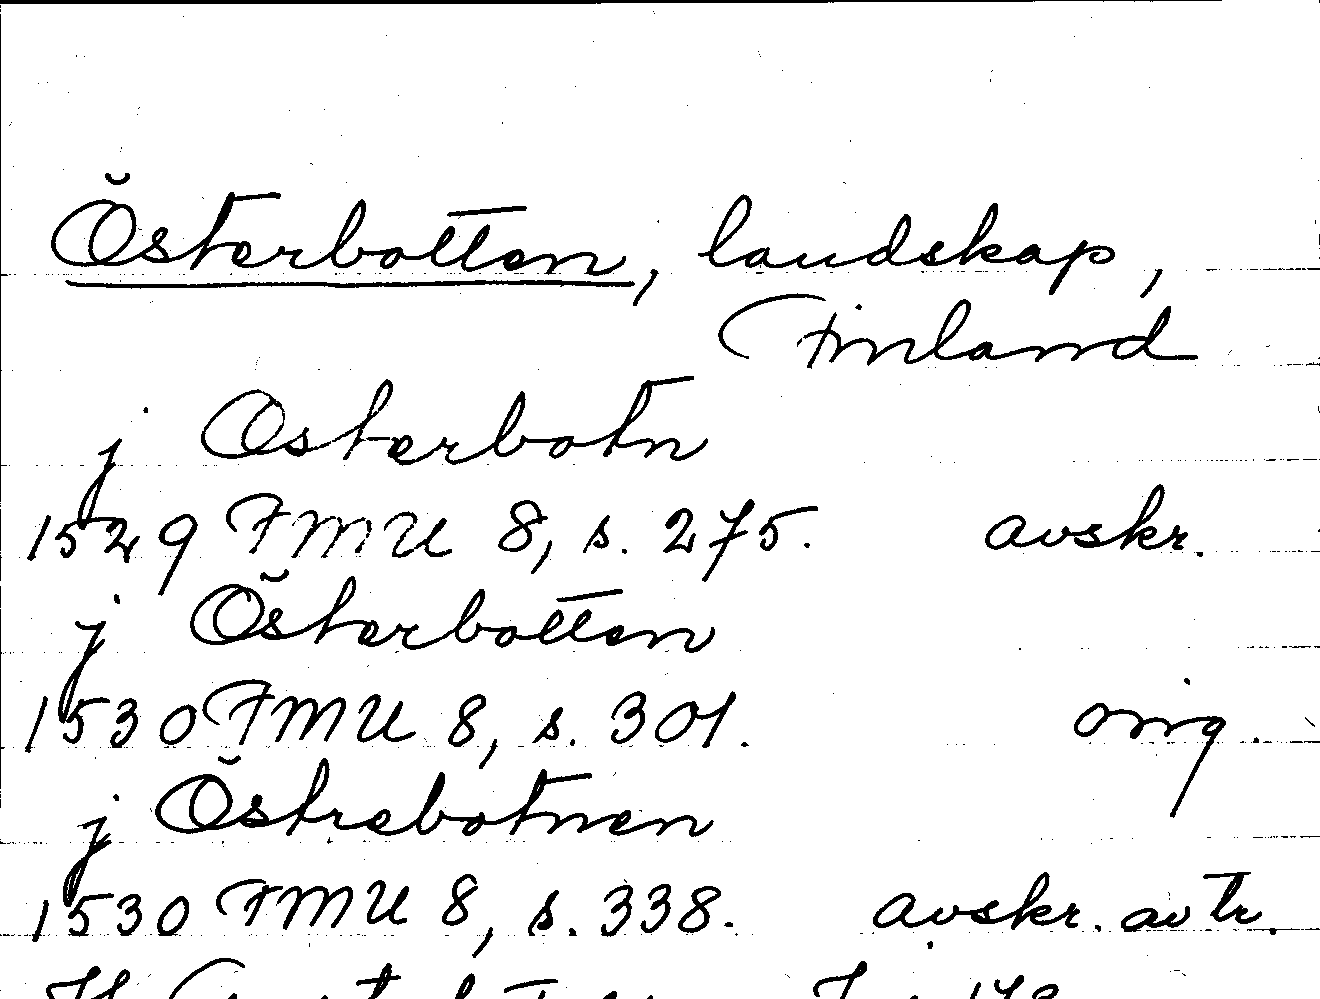 Österbotten, landskap,
Finland
j Osterbotn
1529 FMU 8, s. 275. avskr.
j Österbotten
1530 FMU 8, s. 301. orig.
j Östrebotnen
1530 FMU 8, s. 338. avskr. av tr.